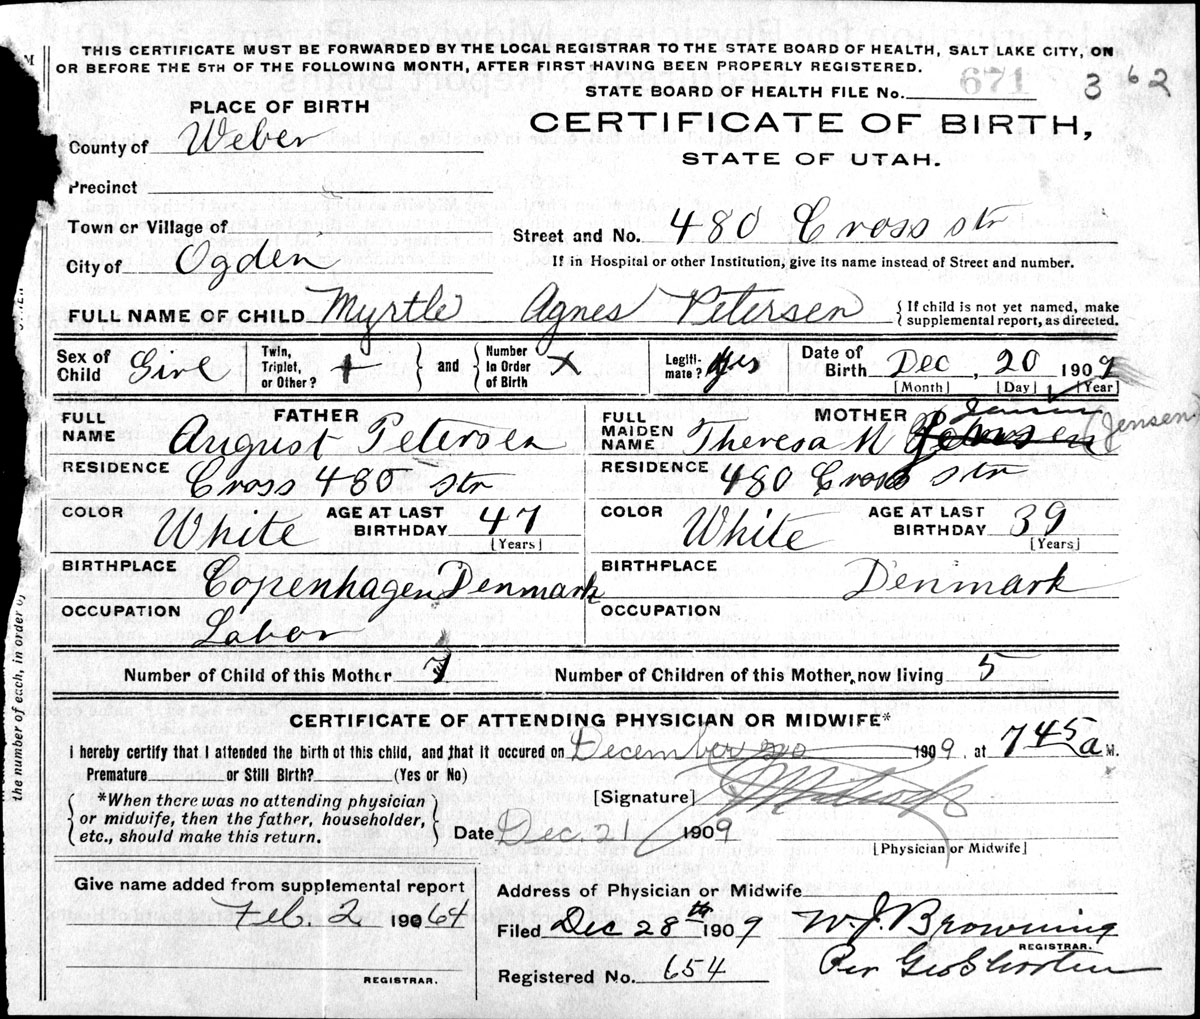 THIS CERTIFICATE MUST BE FORWARDED BY THE LOCAL REGISTRAR TO THE STATE BOARD OF HEALTH, SALT LAKE CITY, ON
OR BEFORE THE 5TH OF THE FOLLOWING MONTH, AFTER FIRST HAVING BEEN PROPERLY REGISTERED.
STATE BOARD OF HEALTH FILE No. 671 362
PLACE OF BIRTH
CERTIFICATE OF BIRTH,
STATE OF UTAH.
County of Weber
Precinct
Town or Village of
Street and No. 480 Cross str
City of Ogden
If in Hospital or other Institution, give its name instead of Street and number.
FULL NAME OF CHILD Myrtle Agnes Petersen
{If child is not yet named, make
supplemental report, as directed.
Sex of Child Girl
Twin, Triplet, or Other? + } and { Number In Order of Birth x
Legitimate? yes
Date of Birth Dec, 20 1909
[Month] [Day] [Year]
FATHER
FULL NAME August Petersen
MOTHER
FULL MAIDEN NAME Theresa M Jensen (Jensen)
RESIDENCE Cross 480 str
RESIDENCE 480 Cross str
COLOR White AGE AT LAST BIRTHDAY 47 [Years]
COLOR White AGE AT LAST BIRTHDAY 39 [Years]
BIRTHPLACE Copenhagen Denmark
BIRTHPLACE Denmark
OCCUPATION Labor
OCCUPATION
Number of Child of this Mother 7
Number of Children of this Mother, now living 5
CERTIFICATE OF ATTENDING PHYSICIAN OR MIDWIFE*
I hereby certify that I attended the birth of this child, and that it occured on December 20 1909, at 745 a M.
Premature or Still Birth? (Yes or No)
[Signature]
{*When there was no attending physician
or midwife, then the father, householder,
etc., should make this return.}
Date Dec. 21 1909
[Physician or Midwife]
Give name added from supplemental report
Feb. 2 19064
REGISTRAR.
Address of Physician or Midwife
Filed Dec 28th 1909 W. J. Browning
REGISTRAR.
Registered No. 654
Per Geo
the number of each, in order o